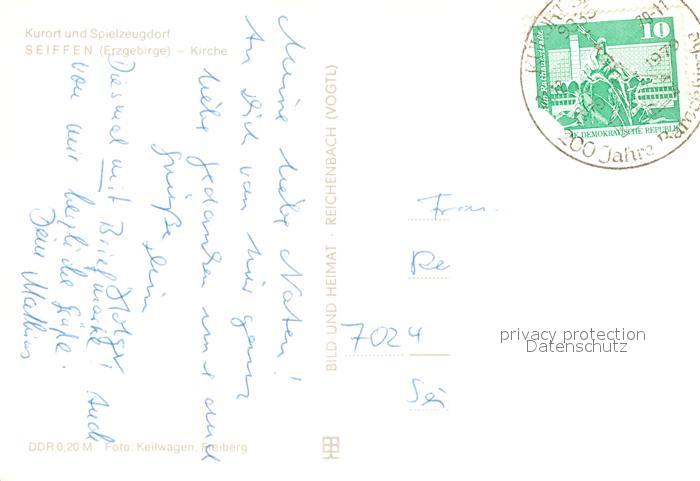 Kurort und Spielzeugdorf
SEIFFEN (Erzgebirge) – Kirche
Meine liebe Naten!
An Dich von hier ganz
liebe Gedanken und auch
Grüße Dein
Holger
Diesmal mit Briefmarke! Auch
von mir herzliche Grüße.
Dein Mathias
DDR 0,20 M Foto: Keilwagen, Freiberg
BILD UND HEIMAT · REICHENBACH (VOGTL)
10
DEMOKRATISCHE REPUBLIK
200 Jahre
Frau
Re
7024
privacy protection
Datenschutz